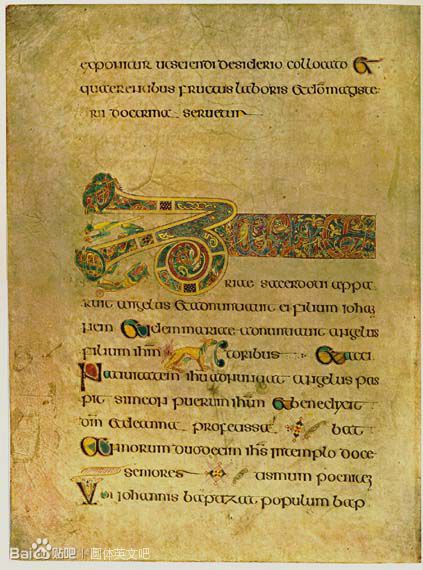 exponitur ut sciendi desiderio collocato et
quaerentibus fructus laboris et magiste
rii doctrina servetur
riae sacerdoti appa
ruit angelus et adnuntiavit ei filium iohan
nen Eidem mariae adnuntiavit angelus
filium ihm toribus Et acci
Nativitatem ihu adnuntiat angelus pas
pit simeon puerum ihm et benedixit
dm et de anna profetissa bat
Et annorum duodecim ihs in templo doce
seniores tismum poeniten
Ubi iohannis baptizat populum bap
Baidu贴吧 | 圆体英文吧